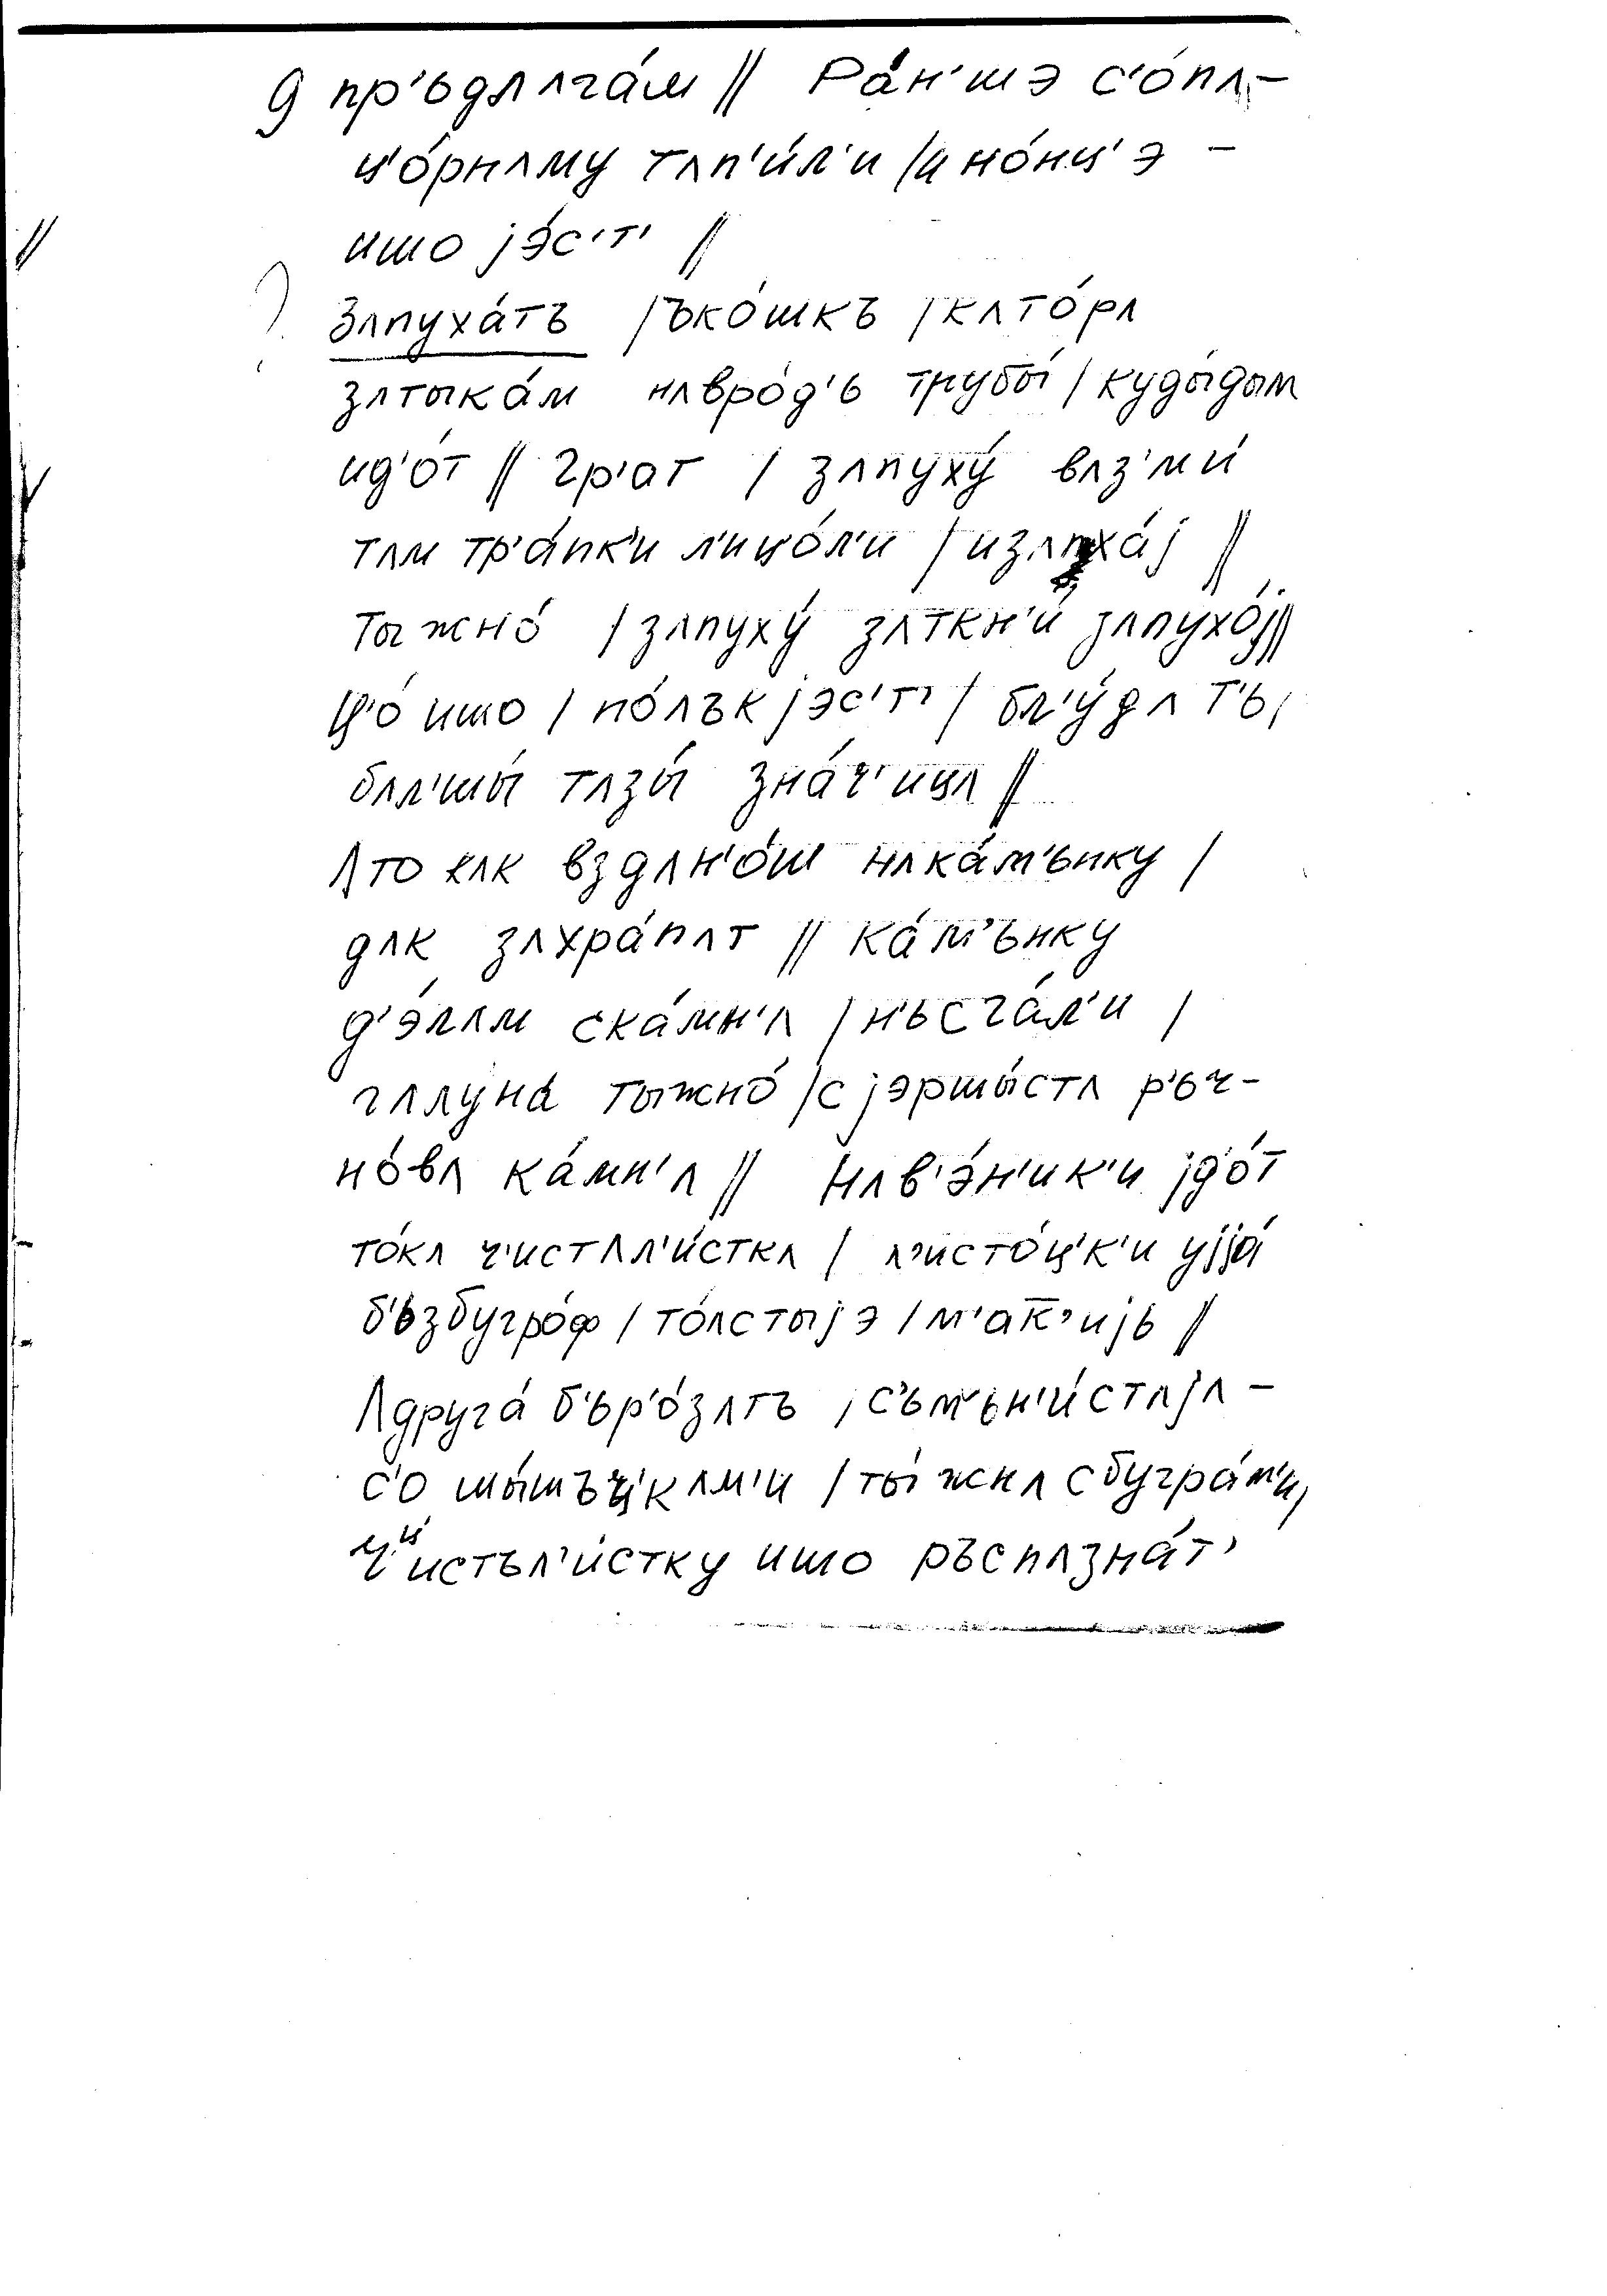 9 пр'ьдллгáм // Рáн'шэ с'óпл-
ц'óрнлму тлп'и́л'и /и нóнц'э -
ишо jэ́с'т' //
Злпухáтъ /ъкóшкъ /клтóрл
злтыкáм нлврóд'ь трубы́ / куды́дым
ид'óт // гр'ат / злпуху́ влз'ми́
тлм тр'áпк'и л'ицóл'и / излпхáj //
тыжнó /злпуху́ злткн'и́ злпухój//
Ц'ó ишо / пóлък jэс'т' / бл'у́дл т'ь /
блл'шы́ тлзы́ знáч'ицл //
Ʌто клк вздлн'óш нлкáм'ьнку /
длк злхрáплт // кáм'ънку
д'э́ллм скáмн'л / н'ьсгáл'и /
гллунá тыжнó /с jэршы́стл р'ьч-
нóвл кáмн'л // Нлв'э́н'ик'и jд'óт
тóкл ч'истлл'и́сткл / л'истóц'к'и уjjá
б'ьзбугрóф / тóлстыjэ / м'ак̅'иjь //
Ʌдругá б'ьр'óзлтъ / с'ъм'ьн'и́стлjл -
с'о шы́шъц'клм'и / ты́жнл сбугрáм'и /
Ч'истъл'и́стку ишо ръсплзнáт'